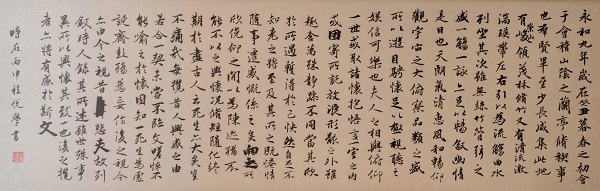 永和九年歲在癸丑暮春之初會
于會稽山陰之蘭亭脩稧事
也羣賢畢至少長咸集此地
有崇山峻領茂林脩竹又有清流激
湍暎帶左右引以為流觴曲水
列坐其次雖無絲竹管弦之
盛一觴一詠亦足以暢敘幽情
是日也天朗氣清惠風和暢仰
觀宇宙之大俯察品類之盛
所以遊目騁懷足以極視聽之
娛信可樂也夫人之相與俯仰
一世或取諸懷抱悟言一室之內
或因寄所託放浪形骸之外雖
趣舍萬殊靜躁不同當其欣
於所遇蹔得於己快然自足不
知老之將至及其所之既惓情
隨事遷感慨係之矣向之所
欣俛仰之閒以為陳迹猶不
能不以之興懷況脩短隨化終
期於盡古人云死生亦大矣豈
不痛哉每攬昔人興感之由
若合一契未嘗不臨文嗟悼不
能喻之於懷固知一死生為虛
誕齊彭殤為妄作後之視今
亦由今之視昔悲夫故列
敘時人錄其所述雖世殊事
異所以興懷其致一也後之攬
者亦將有感於斯文
時在丙申程悅學書